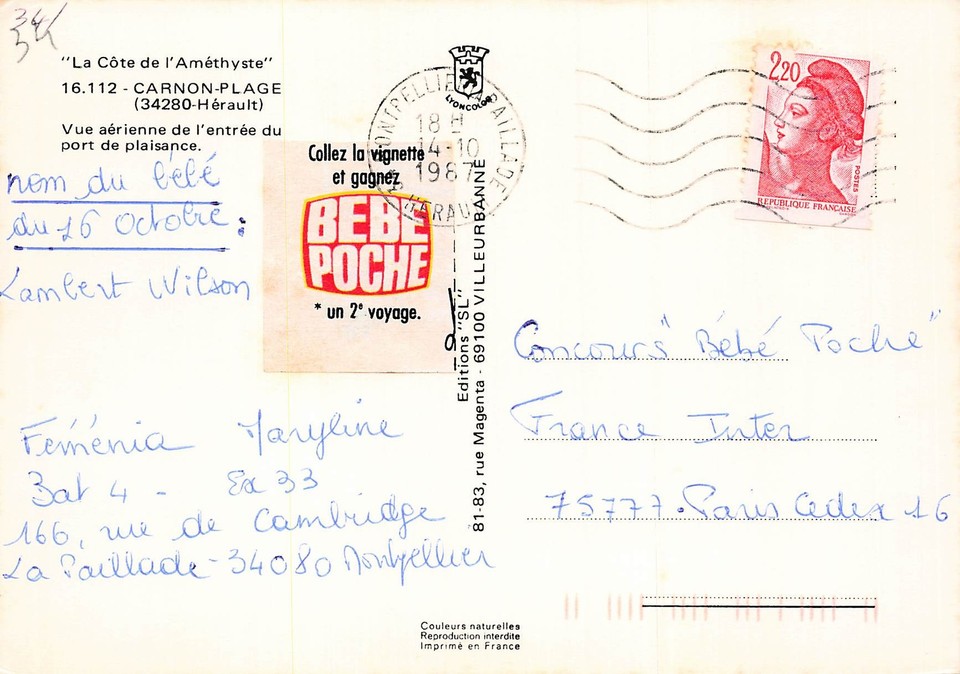 34
34
"La Côte de l'Améthyste"
16.112 - CARNON-PLAGE
(34280-Hérault)
Vue aérienne de l'entrée du
port de plaisance.
nom du bébé
du 16 Octobre :
Lambert Wilson
Collez la vignette
et gagnez
BEBE
POCHE
* un 2e voyage.
Feménia Maryline
Bat 4 - Ex 33
166, rue de Cambridge
La Paillade - 34080 Montpellier
LYONCOLOR
MONTPELLIER LA PAILLADE
18 H
14-10
1987
HERAULT
Editions "SL"
81-83, rue Magenta - 69100 VILLEURBANNE
2,20
POSTES
REPUBLIQUE FRANÇAISE
Concours "Bébé Poche"
France Inter
75777 . Paris Cedex 16
Couleurs naturelles
Reproduction interdite
Imprimé en France